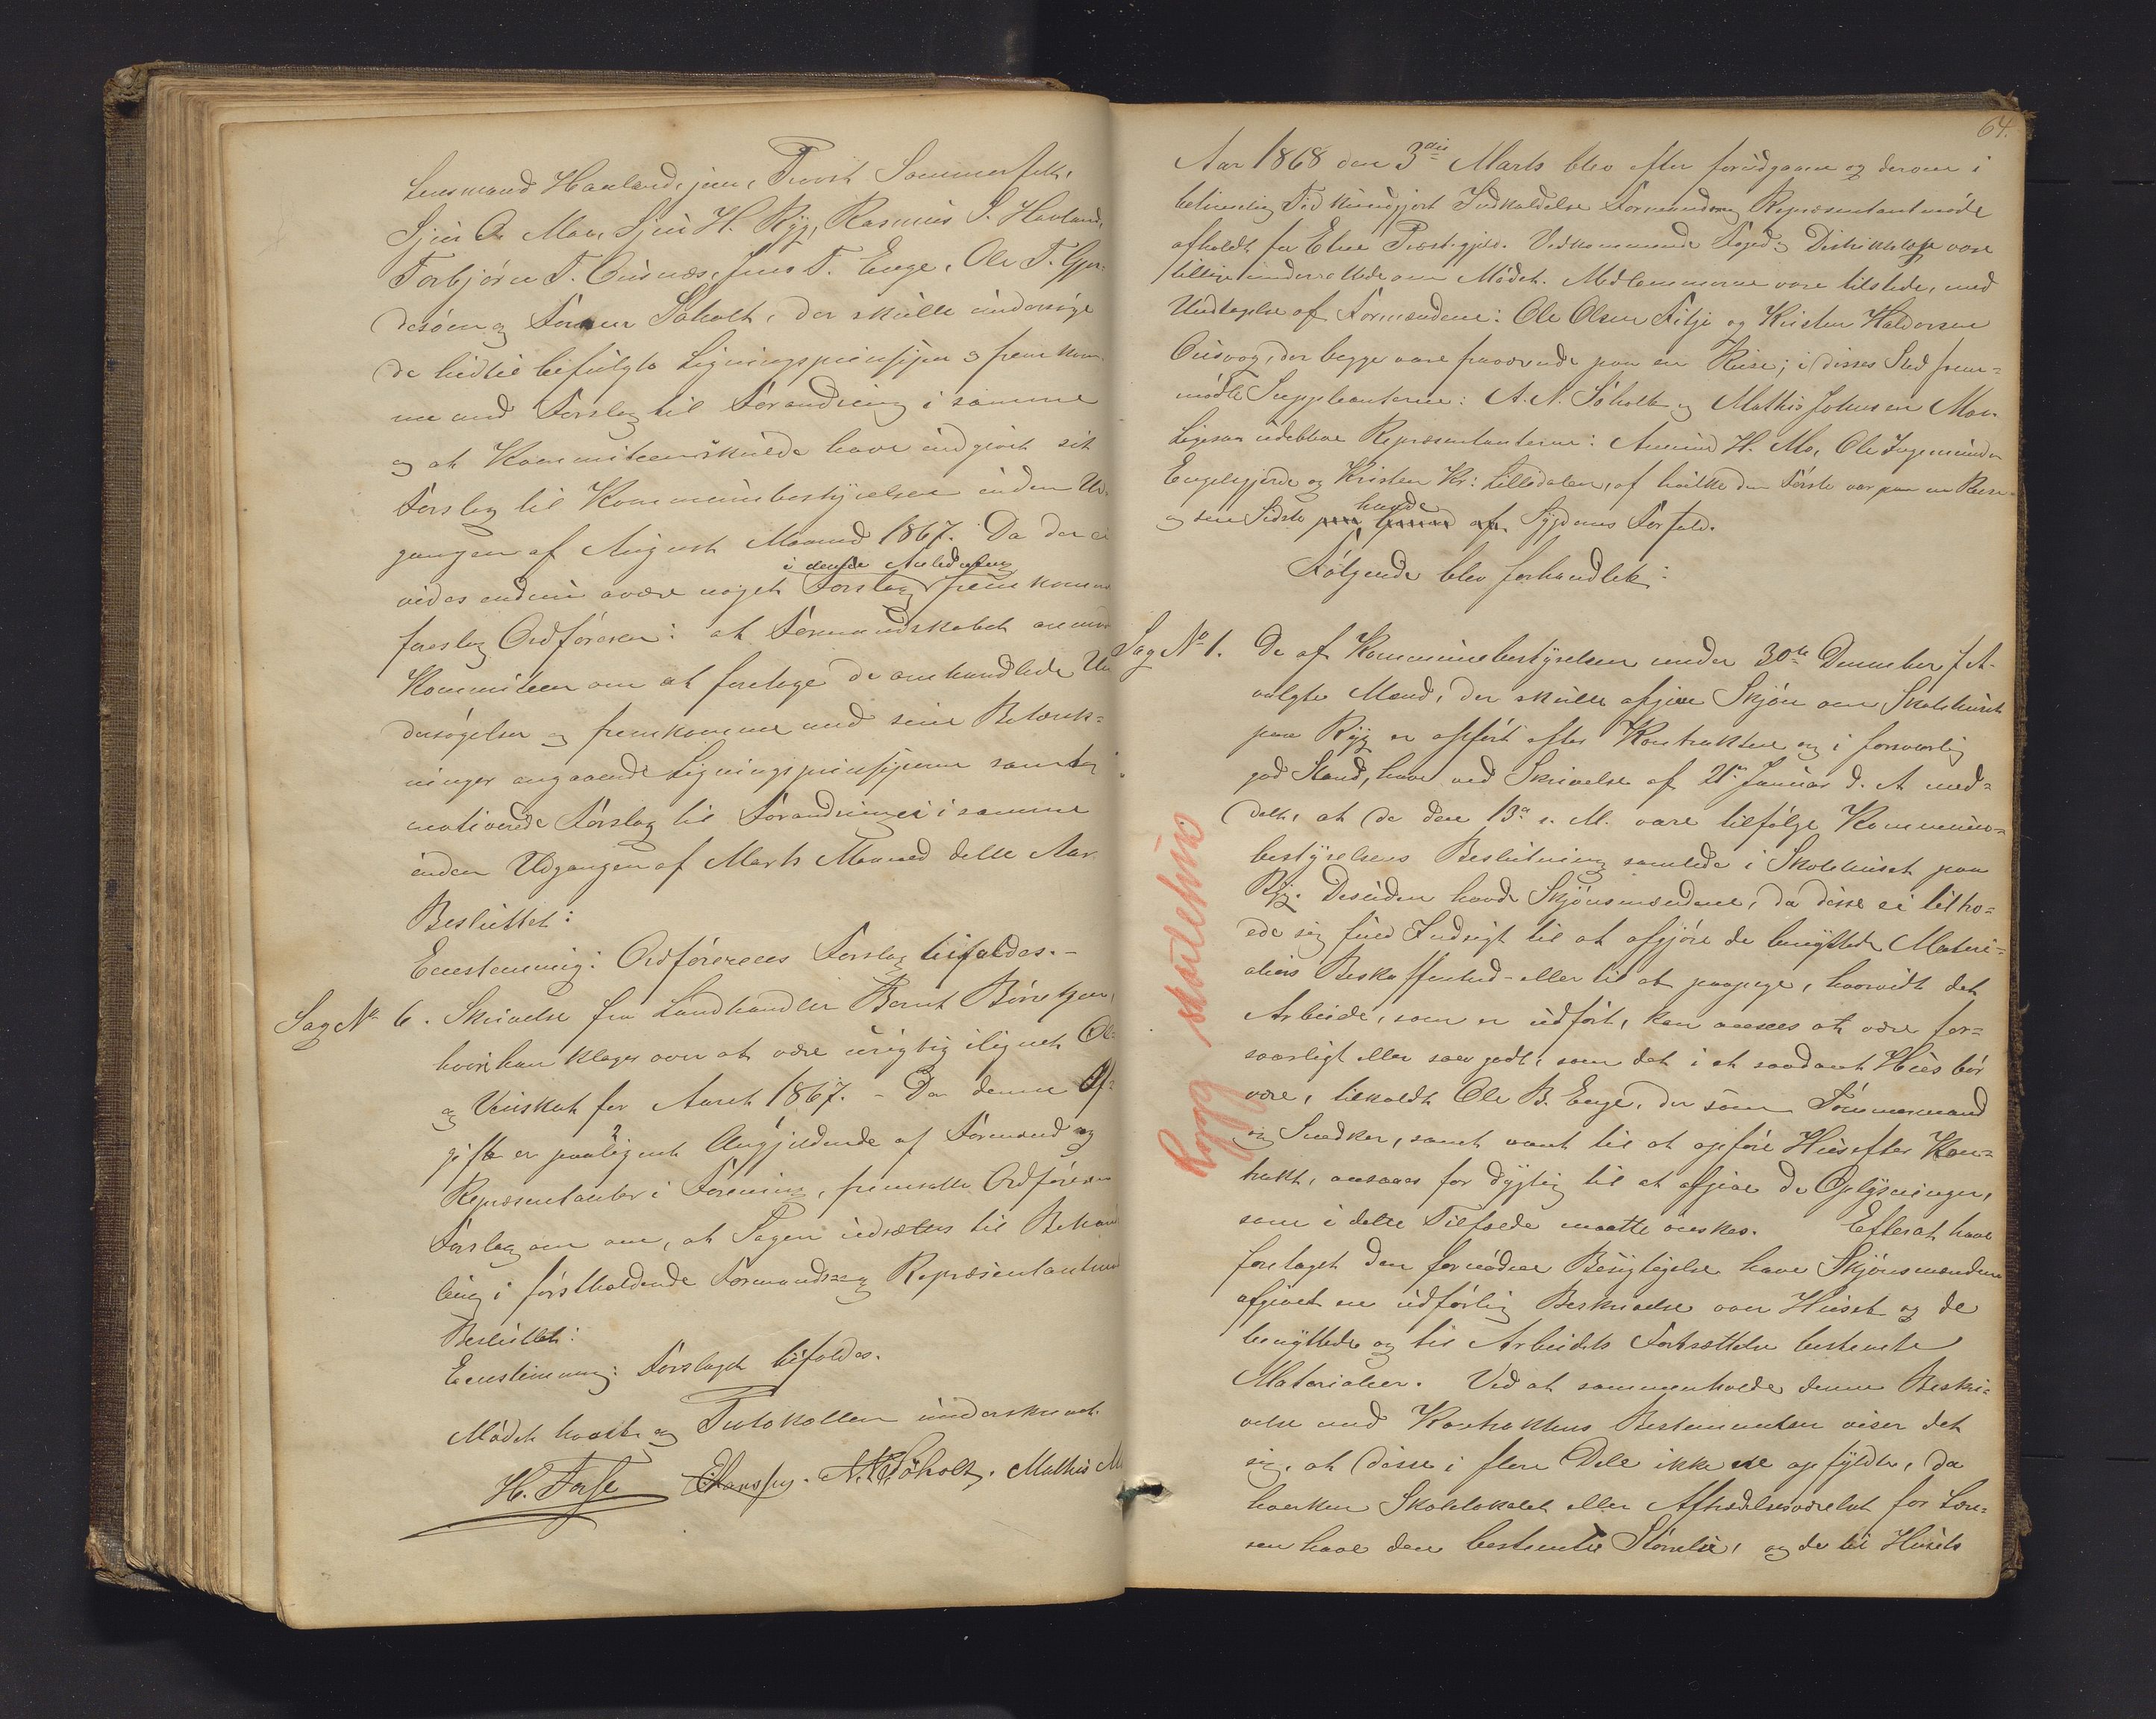 Lensmand Havland, jun, Provst Sommerfelt,
Sjur A. Moe, Sjur H. Ryg, Rasmus S. Havland,
Torbjørn T. Ousnæs, Jens T. Enge, Ole T. Gjer-
desøen og Søholt, der skulle undersøge
de hidtil befulgte Ligningsprinsiper & fremkom-
me med Forslag til Forandring i samme
og at Kommiteen skulde have indgivet sit
Forslag til Kommunebestyrelsen inden Ud-
gangen af August Maaned 1867. Da der ei
i denne Anledning
vides endnu være noget Forslag fremkommet
foreslog Ordføreren: at Formandskabet anmoder
Kommiteen om at foretage de omhandlede Un-
dersøgelser og fremkomme med sine Betænk-
ninger angaaende Ligningsprinsiperne samt
motiverede Forslag til Forandringer i samme
inden Udgangen af Marts Maaned dette Aar.
Besluttet:
Eenstemmig: Ordførerens Forslag bifaldes.-
Sag No 6. Skrivelse fra Landhandler Bernt
hvori han klager over at være urigtig ilignet Øl-
og Vinskat for Aaret 1867. - Da denne Af-
gift er paalignet Angjeldende af Formænd og
Repræsentanter i Forening, fremsatte Ordføreren
Forslag om, at Sagen udsættes til Behand-
ling i førstholdende Formands- og Repræsentantmøde
Besluttet:
Eenstemmig: Forslaget bifaldes.
Mødet hævet og Protokollen underskrevet.
H. Forse A. N. Søholt. Mathis M
64.
Aar 1868 den 3die Marts blev efter forudgaaen og derom i
betimelig Tid kundgjort Indkaldelse Formands og Repræsentantmøde
afholdt for Ethne Præstegjeld. Vedkommende Foged & Distriktslæge vare
tillige underrettede om Mødet. Medlemmerne vare tilstede, med
Undtagelse af Formændene: Ole Olsen Fitje og Kristen Haldorsen
Ousvog, der begge vare fraværende paa en Reise; i disses Sted frem-
mødte Suppleanterne: A. N. Søholt og Mathis Johnsen Moe.
Ligesaa udebleve Repræsentanterne: Amund H. Mo, Ole Ingemundsen
Engelsgjerde og Kristen Kr: Lilledalen, af hvilke den Første var paa en Reise
havde
og den Sidste Sygdoms Forfald.
Følgende blev forhandlet:
Sag No 1. De af Kommunebestyrelsen under 30te December f. A.
valgte Mænd, der skulle afgive Skjøn om Skolehuset
paa Ryg er opført efter Kontrakten og i forsvarlig
god Stand, have ved Skrivelse af 21de Januar d. A. med-
delt, at de den 13de s. M. vare tilfølge Kommune-
bestyrelsens Beslutning samlede i Skolehuset paa
Ryg. Desuden havde Skjønsmændene, da disse ei tiltro-
ede sig fuld Indsigt til at afgjøre de benyttede Materi-
aliers Beskaffenhed - eller til at paapege, hvorvidt det
Arbeide, som er udført, kan ansees at være for-
svarligt eller saa godt, som det i et saadant Huus bør
være, tilkaldt Ole B. Enge, der som Tømmermand
og Snedker, samt vant til at opføre Huse efter Kon-
trakt, ansaaes for dygtig til at afgive de Oplysninger,
som i dette Tilfælde maatte ønskes. Efterat have
foretaget den fornødne Besigtigelse have Skjønsmændene
afgivet en udførlig Beskrivelse over Huset og de
benyttede og til Arbeidets Fortsættelse bestemte
Materialier. Ved at sammenholde denne Beskri-
velse med Kontraktens Bestemmelser viser det
sig, at disse i flere Dele ikke ere opfyldte, da
hverken Skolelokalet eller Aftrædelsesværelset for Lære-
ren have den bestemte Størrelse, og de til Husets
Rygg skulehus